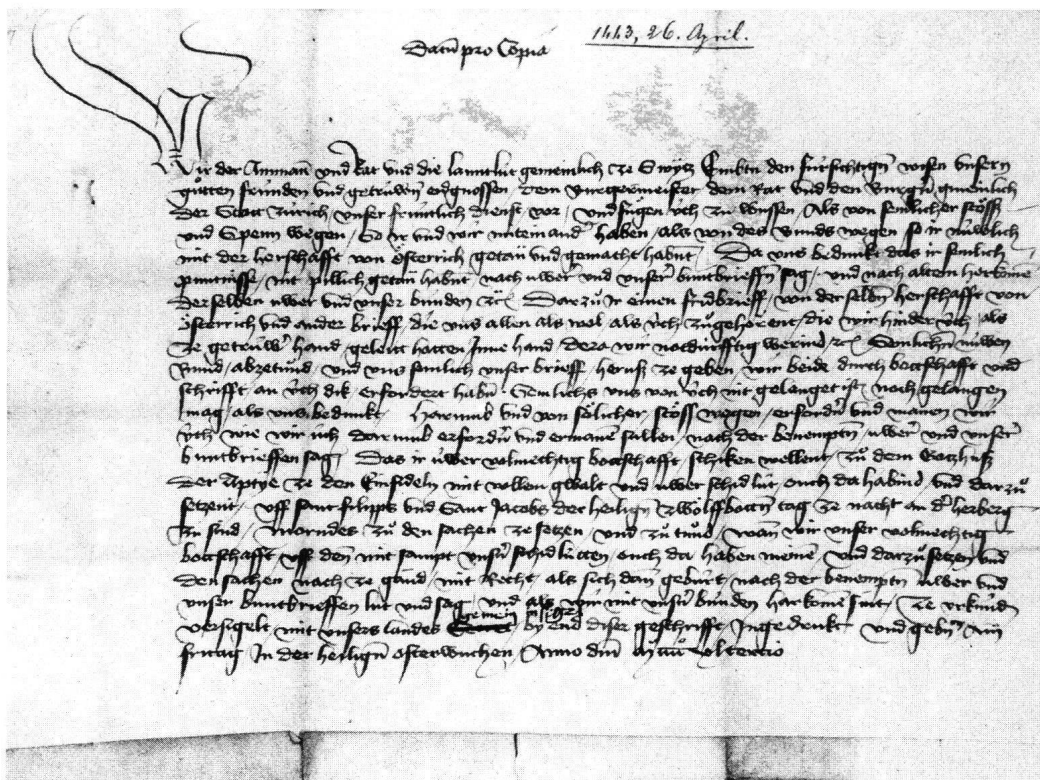 1443, 26. April.
Datum pro Copia
Wir der Amman vnd Rat vnd die lantlüt gemeinlich ze Swytz Embutn den fürsichtign wisen vnsern
gůtten fründen vnd getrüwen eidgnossen dem Burgermeister dem Rat vnd den Burgern gmeinlich
der Statt Zürich vnser früntlich dienst vor / vnd fügen üch zů wüssen / Als von semlicher stöss
vnd Spenn wegen / So ir vnd wir miteinand haben / als von des Bunds wegen so ir nüwlich
mit der herschafft von österrich getan vnd gemacht habent / Da vns bedunkt das ir semlich
püntniss / nit pillich getan habint / nach üwer vnd vnser buntbrieffen sag / vnd nach altem harkomen
derselben üwer vnd vnser bünden Dar zů ir einen fridbrieff / von der selbn herschafft von
österrich vnd ander brieff die vns allen als wol als üch zůgehörent / die wir hinder üch / als
ze getrüwer hand geleitt hatten Inne hand dero wir notdürfftig werind Semlichn nüwen
Bund / abzetůnd / vnd vns semlich vnser brieff / herus ze geben / wir beide durch bottschafft vnd
schrifft an üch dik erfordert habn Semlichs vns von üch nit gelanget ist noch gelangen
mag / als vns bedunkt / Harumb vnd von sölicher stöss wegen / erfordn vnd manen wir
üch / wie wir üch darumb erfordn vnd ermanen sullen / nach der benemptn üwer vnd vnser
buntbrieffen sag Das ir üwer volmechtig bottschafft / schiken wellent / zů dem Gotzhuss
der Aptye ze den Einsideln mit vollen gwalt vnd üwer schidlüt / ouch da habind / vnd darzů
setzent / vff sant filipps vnd Sant Jacobs der heiligen zwölffbotten tag ze nacht an der herberg
zu sind / Morndes zů den sachen ze setzen / vnd zů tůnd / wan wir vnser volmechtig
bottschafft / vff den mit sampt vnsern schidlütten / ouch da haben meinen vnd darzů setzen vnd
den sachen nach ze gand / mit Recht / als sich dann gebürt / nach der benemptn üwer vnd
vnser buntbrieffen lut vnd sag / vnd als wir mit vnsern bünden harkomen sint / Ze vrkünd
versigelt mit vnsers landes gemein insigel by end diser geschrifft Ingedrukt vnd gebn am
fritag In der heiligen osterwuchen / Anno dm